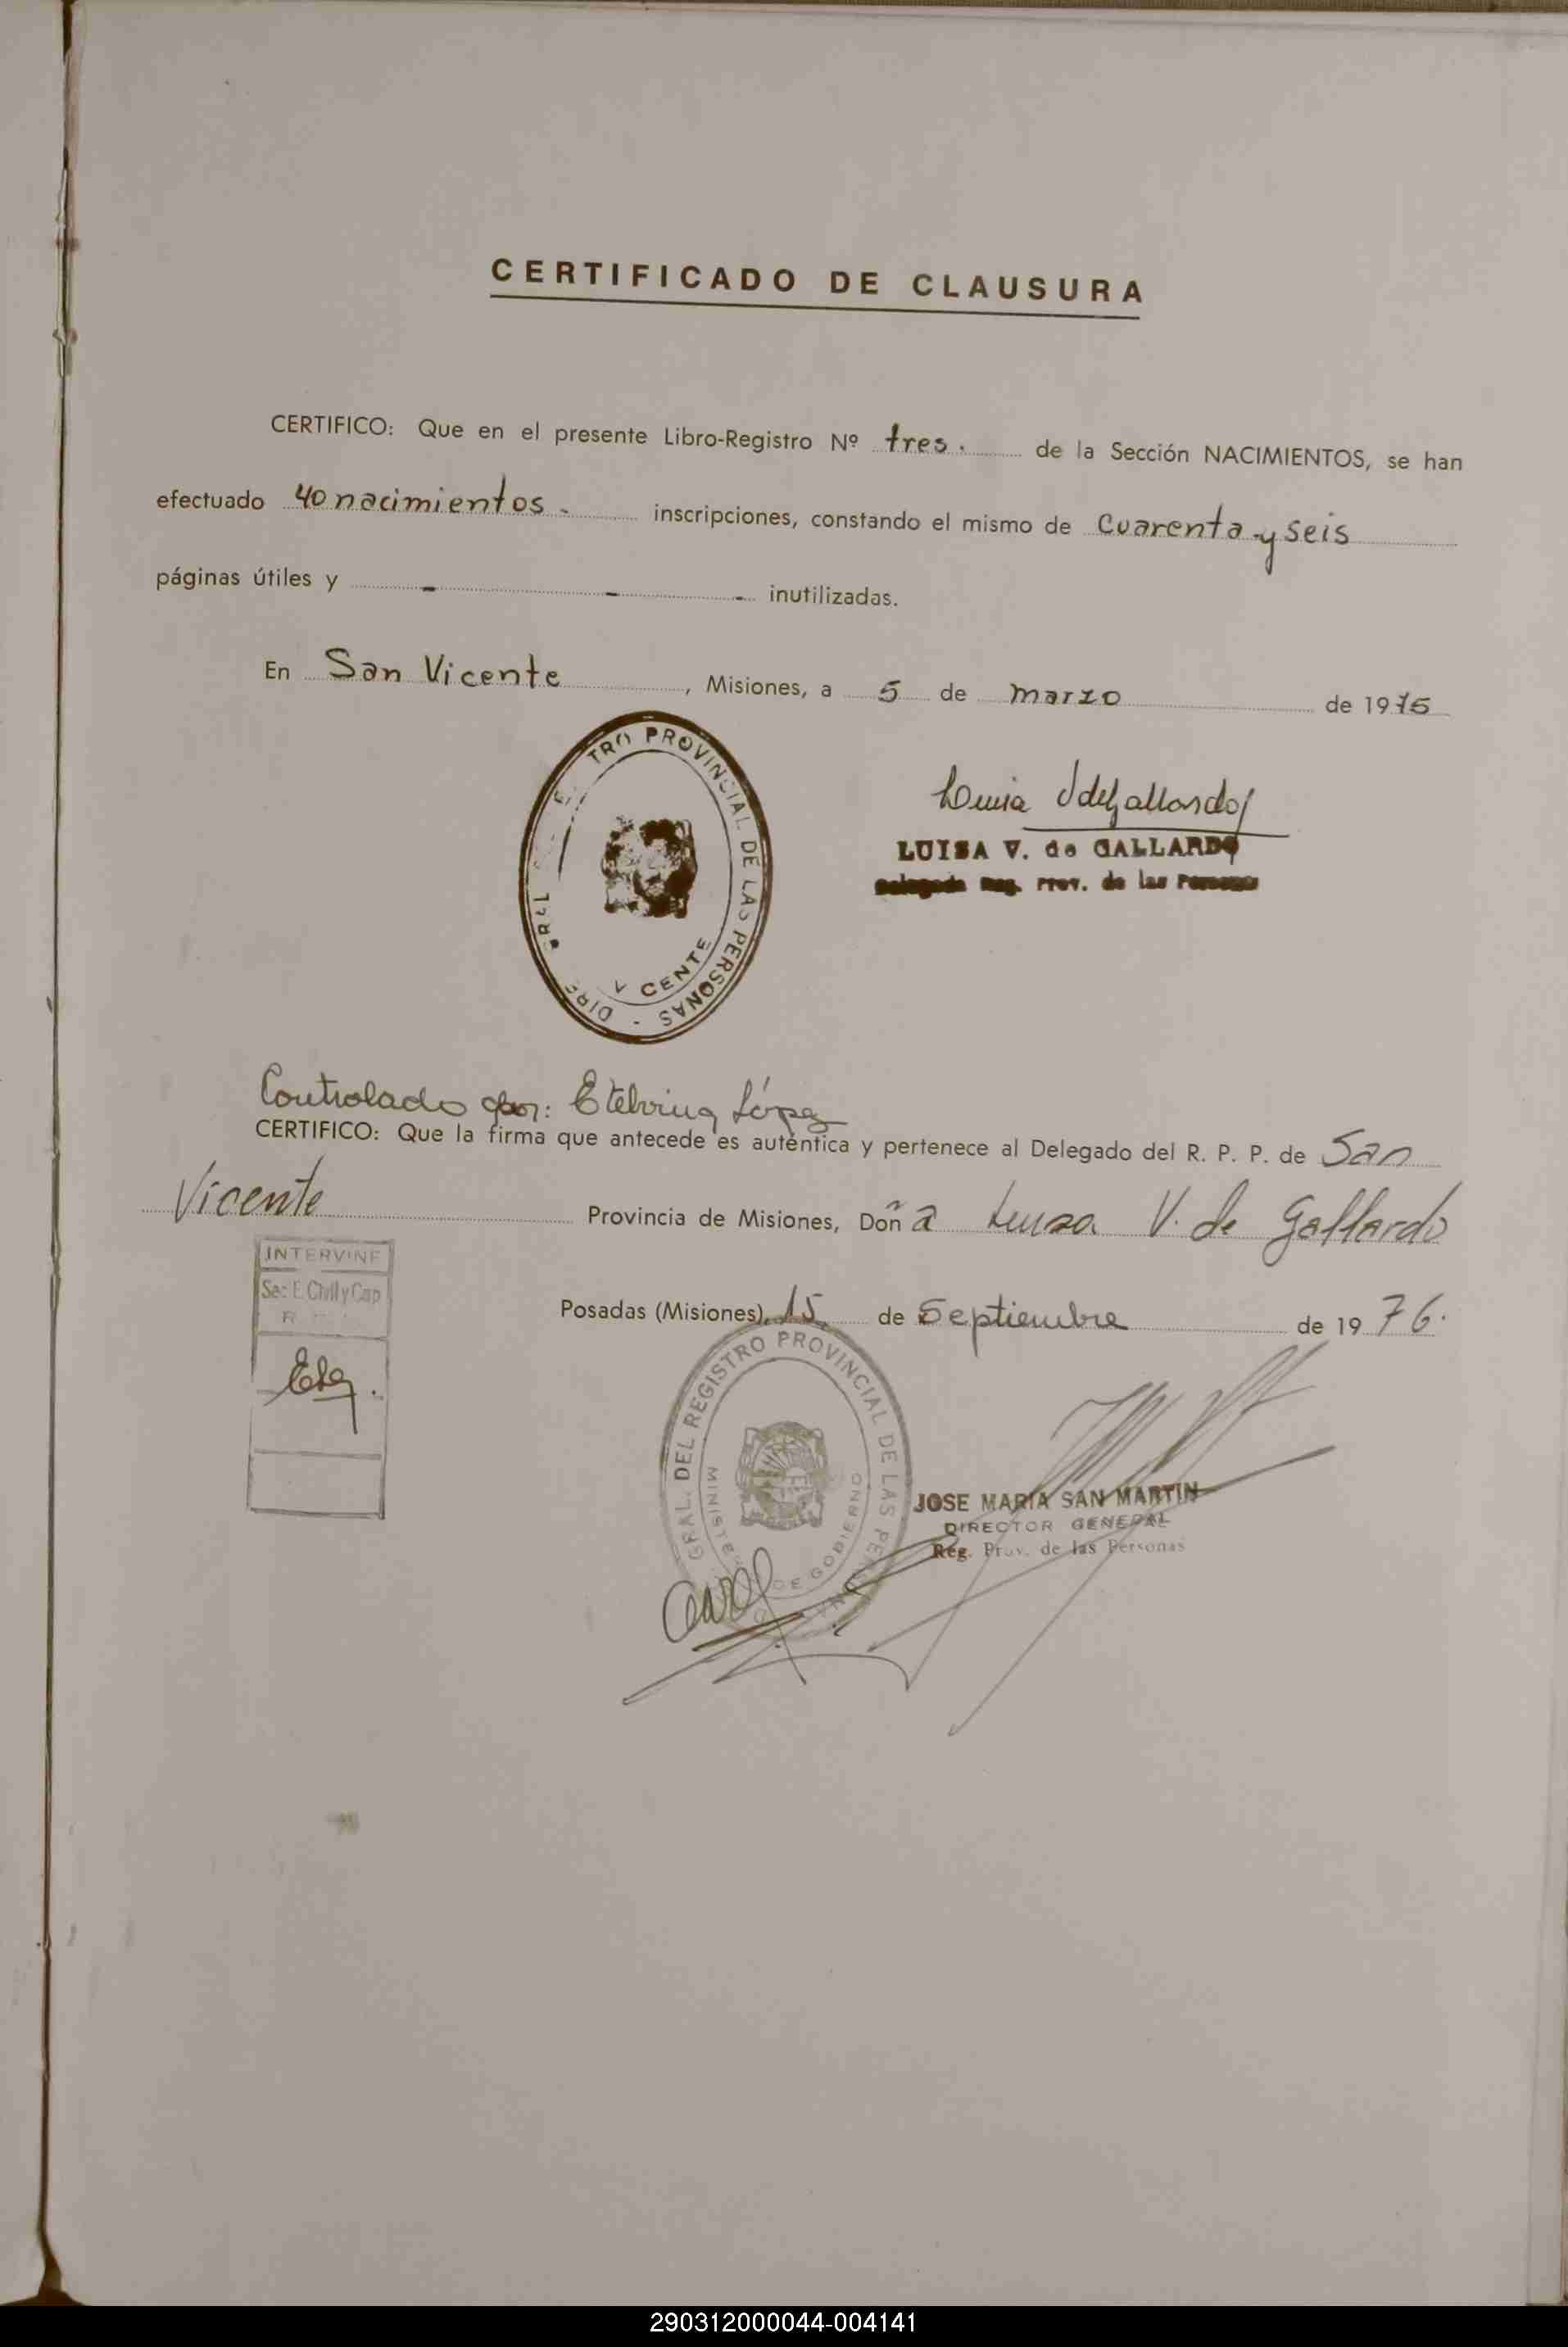 CERTIFICADO DE CLAUSURA
CERTIFICO: Que en el presente Libro-Registro Nº tres. de la Sección NACIMIENTOS, se han
efectuado 40 nacimientos - inscripciones, constando el mismo de cuarenta y seis
páginas útiles y - - - inutilizadas.
En San Vicente, Misiones, a 5 de marzo de 1975
TRO PROVINCIAL DE LAS PERSONAS - DIRE
V CENTE
LUISA V. de GALLARDO
Delegada Reg. Prov. de las Personas
Controlado por: Etelvina López
CERTIFICO: Que la firma que antecede es auténtica y pertenece al Delegado del R. P. P. de San
Vicente Provincia de Misiones, Doña Luisa V. de Gallardo
INTERVINE
Sec. E. Civil y Cap
Posadas (Misiones), 15 de Septiembre de 1976.
GRAL. DEL REGISTRO PROVINCIAL DE LAS PER
MINISTER DE GOBIERNO
JOSE MARIA SAN MARTIN
DIRECTOR GENERAL
Reg. Prov. de las Personas
290312000044-004141